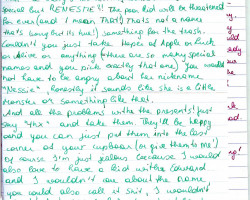 special but RENESME?! The poor kid will be threatened
for ever (and I mean that!) That's not a name
that's (sorry but it's true!) something for the trash.
Couldn't you just take Hope or Apple or such
or Olive or anything there are so many special
names and you pick exactly that one! You would
not have to be angry about her nickname
"Nessie", honestly it sounds like she is a little
monster or something like that!
And all the problems with the presents! Just
say "thx" and take them. They'll be happy
and you can just put them into the last
corner of your cupboard (or give them to me!)
Of course I'm just jealous (because I would
also love to have a kid with Edward
and I wouldn't care about the name
you could also call it shit, I wouldn't